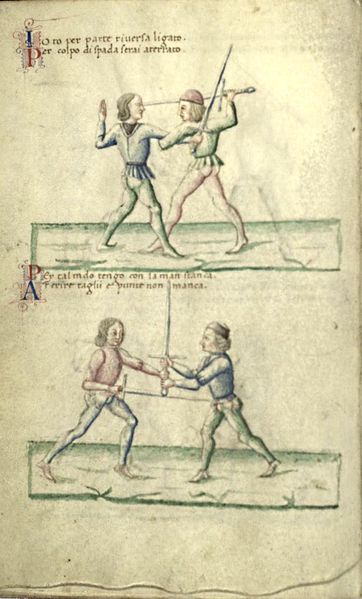 Io to per parte riversa ligato.
Per colpo di spada serai aterrato.
Per tal modo tengo con la man stanca.
A ferire taglii e punte non manca.